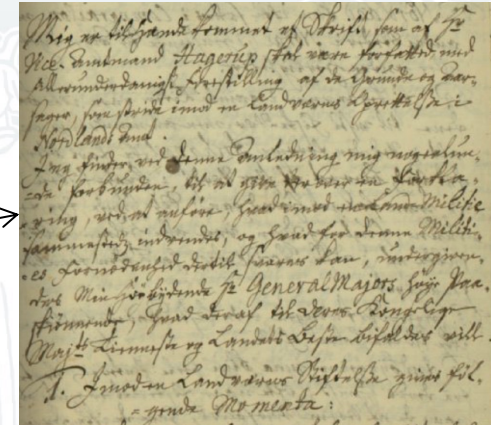 Mig er til Hænde kommet et Skrift, som af Hr
Vice-Amtmand Hagerup skal være forfatted, med
Allerunderdanigst Forestilling af de Grunde og Aar-
sager, som stride imod en Landværns Oprettelse i
Nordlands Amt.
Jeg finder, ved denne Anledning mig nogenlun-
de forbunden, til at give her over en Forkla-
ring, ved at anføre, hvad imod Militie
sammesteds indvendes, og hvad for denne Militi-
es Fornødenhed dertil svares kan, undergiven-
des Min Høybydende Hr General Majors høye Paa-
skiønnende, hvad deraf til Deres Kongelige
Majts Tieneste og Landets Beste bifaldes vill.
1. Imod en Landværns Stiftelse gives føl-
gende Momenta: